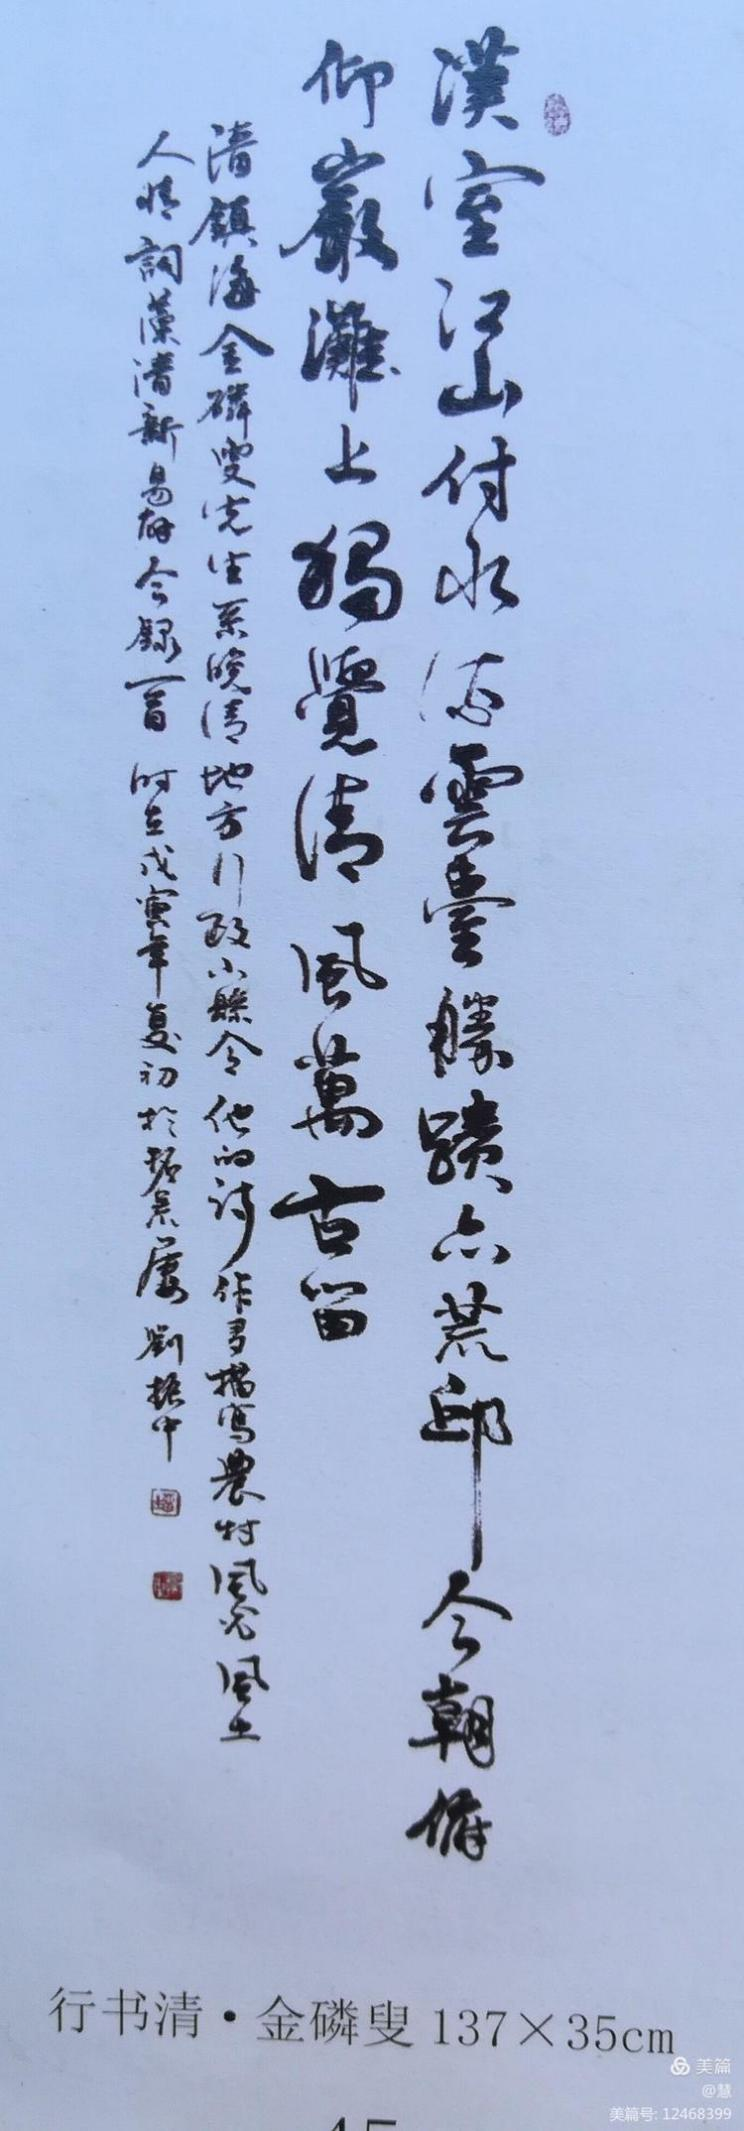 漢室江山付水流雲臺勝蹟亦荒邱今朝俯
仰巖灘上獨覺清風萬古留
清鎮海金磷叟先生系晚清地方行政小縣令他的詩作多描寫農村風光風土
人情詞藻清新易解今錄一首時在戊寅年夏初於 劉振中
行书清·金磷叟137×35cm
美篇
@慧
美篇号: 12468399